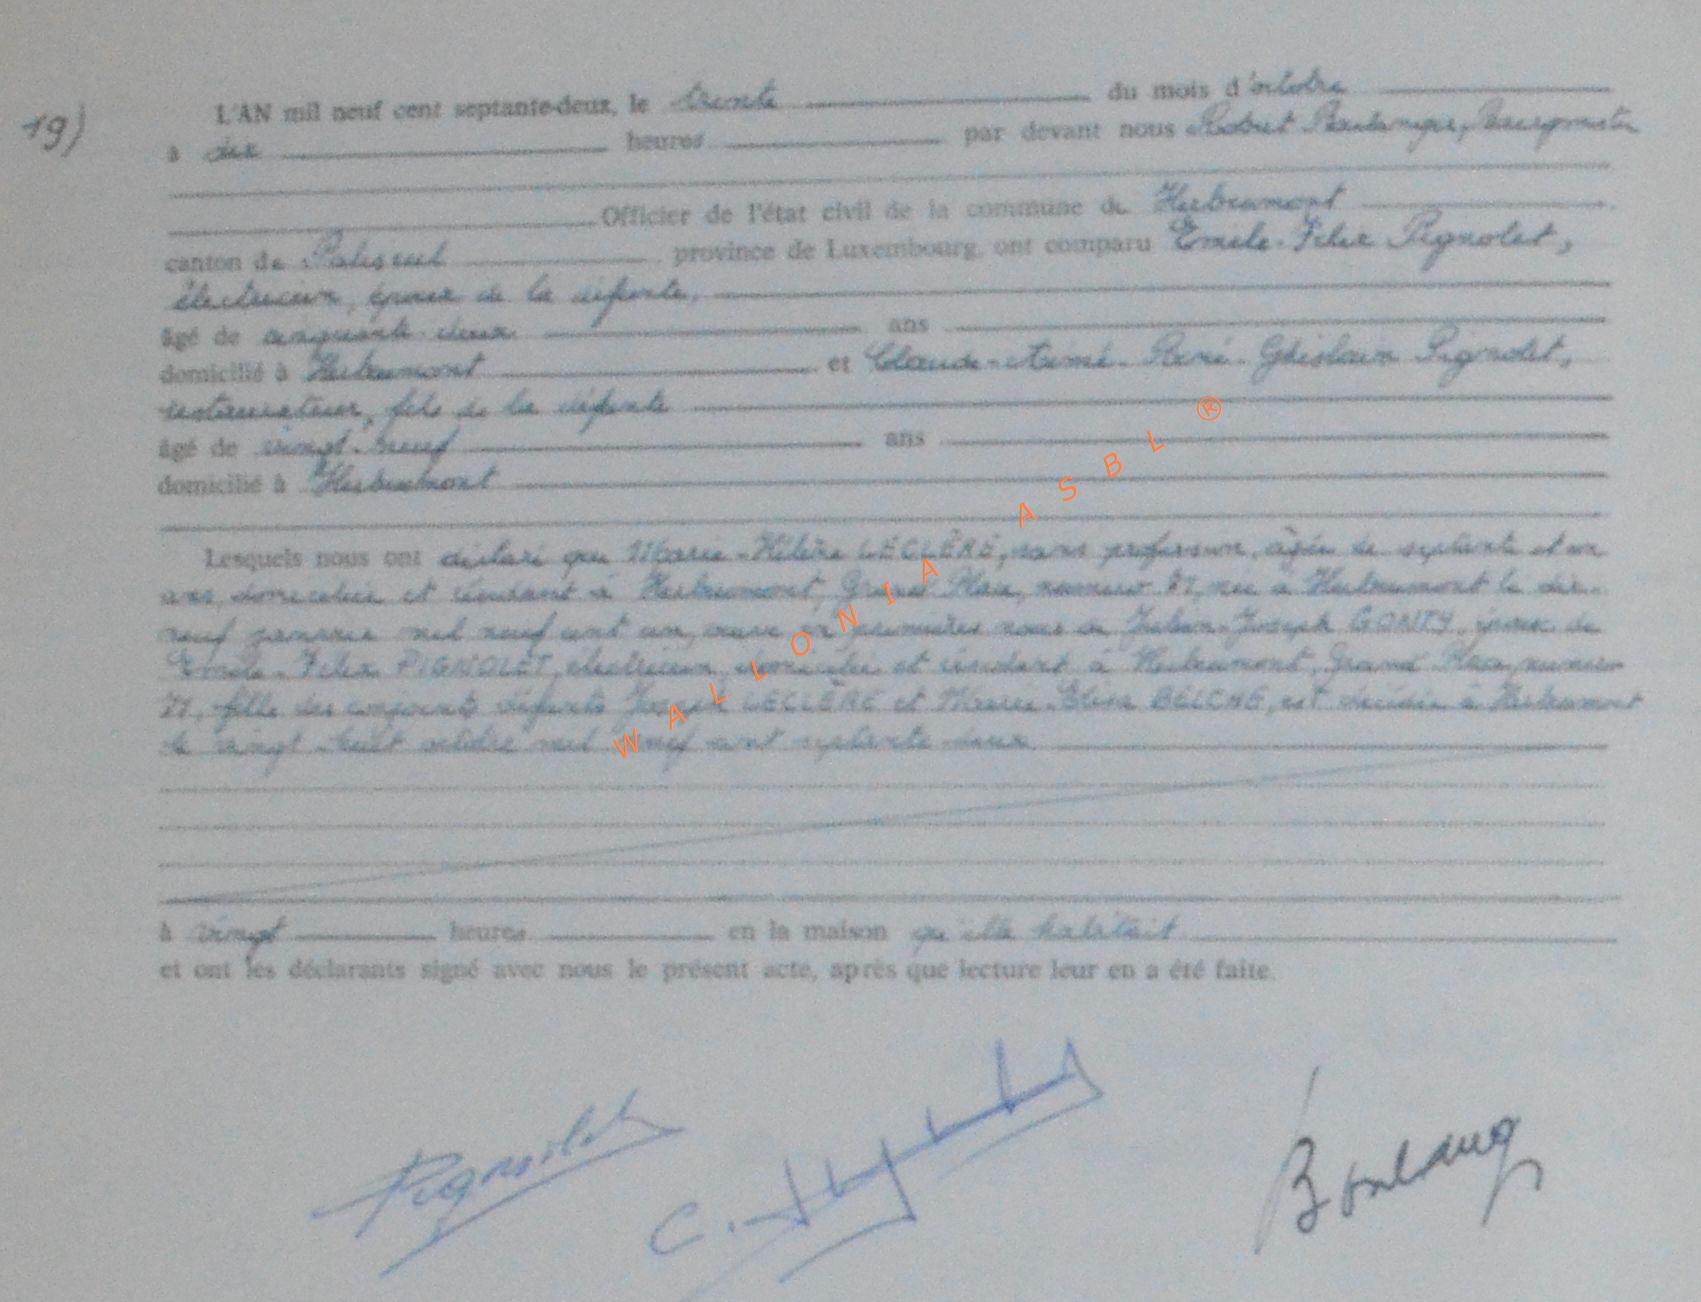 19)
L'AN mil neuf cent septante-deux, le trente du mois d'octobre
à dix heures par devant nous Robert Boulanger, Bourgmestre
Officier de l'état civil de la commune de Herbeumont
canton de Paliseul province de Luxembourg, ont comparu Emile-Félix Pignolet,
électricien, époux de la défunte,
âgé de cinquante-deux ans
domicilié à Herbeumont et Claude-Aimé-René-Ghislain Pignolet,
restaurateur, fils de la défunte
âgé de vingt-neuf ans
domicilié à Herbeumont
Lesquels nous ont déclaré que Marie-Hélène LECLÈRE, sans profession, âgée de septante et un
ans, domiciliée et résidant à Herbeumont, Grand Place, numéro 27, née à Herbeumont le dix-
neuf janvier mil neuf cent un, veuve en premières noces de Julien-Joseph GONTY, épouse de
Emile-Félix PIGNOLET, électricien, domicilié et résidant à Herbeumont, Grand Place, numéro
27, fille des conjoints défunts Joseph LECLÈRE et Marie-Elisa BELCHE, est décédée à Herbeumont
le vingt-huit octobre mil neuf cent septante-deux
à vingt heures en la maison qu'elle habitait
et ont les déclarants signé avec nous le présent acte, après que lecture leur en a été faite.
Pignolet
Boulanger
WALLONIA ASBL ®